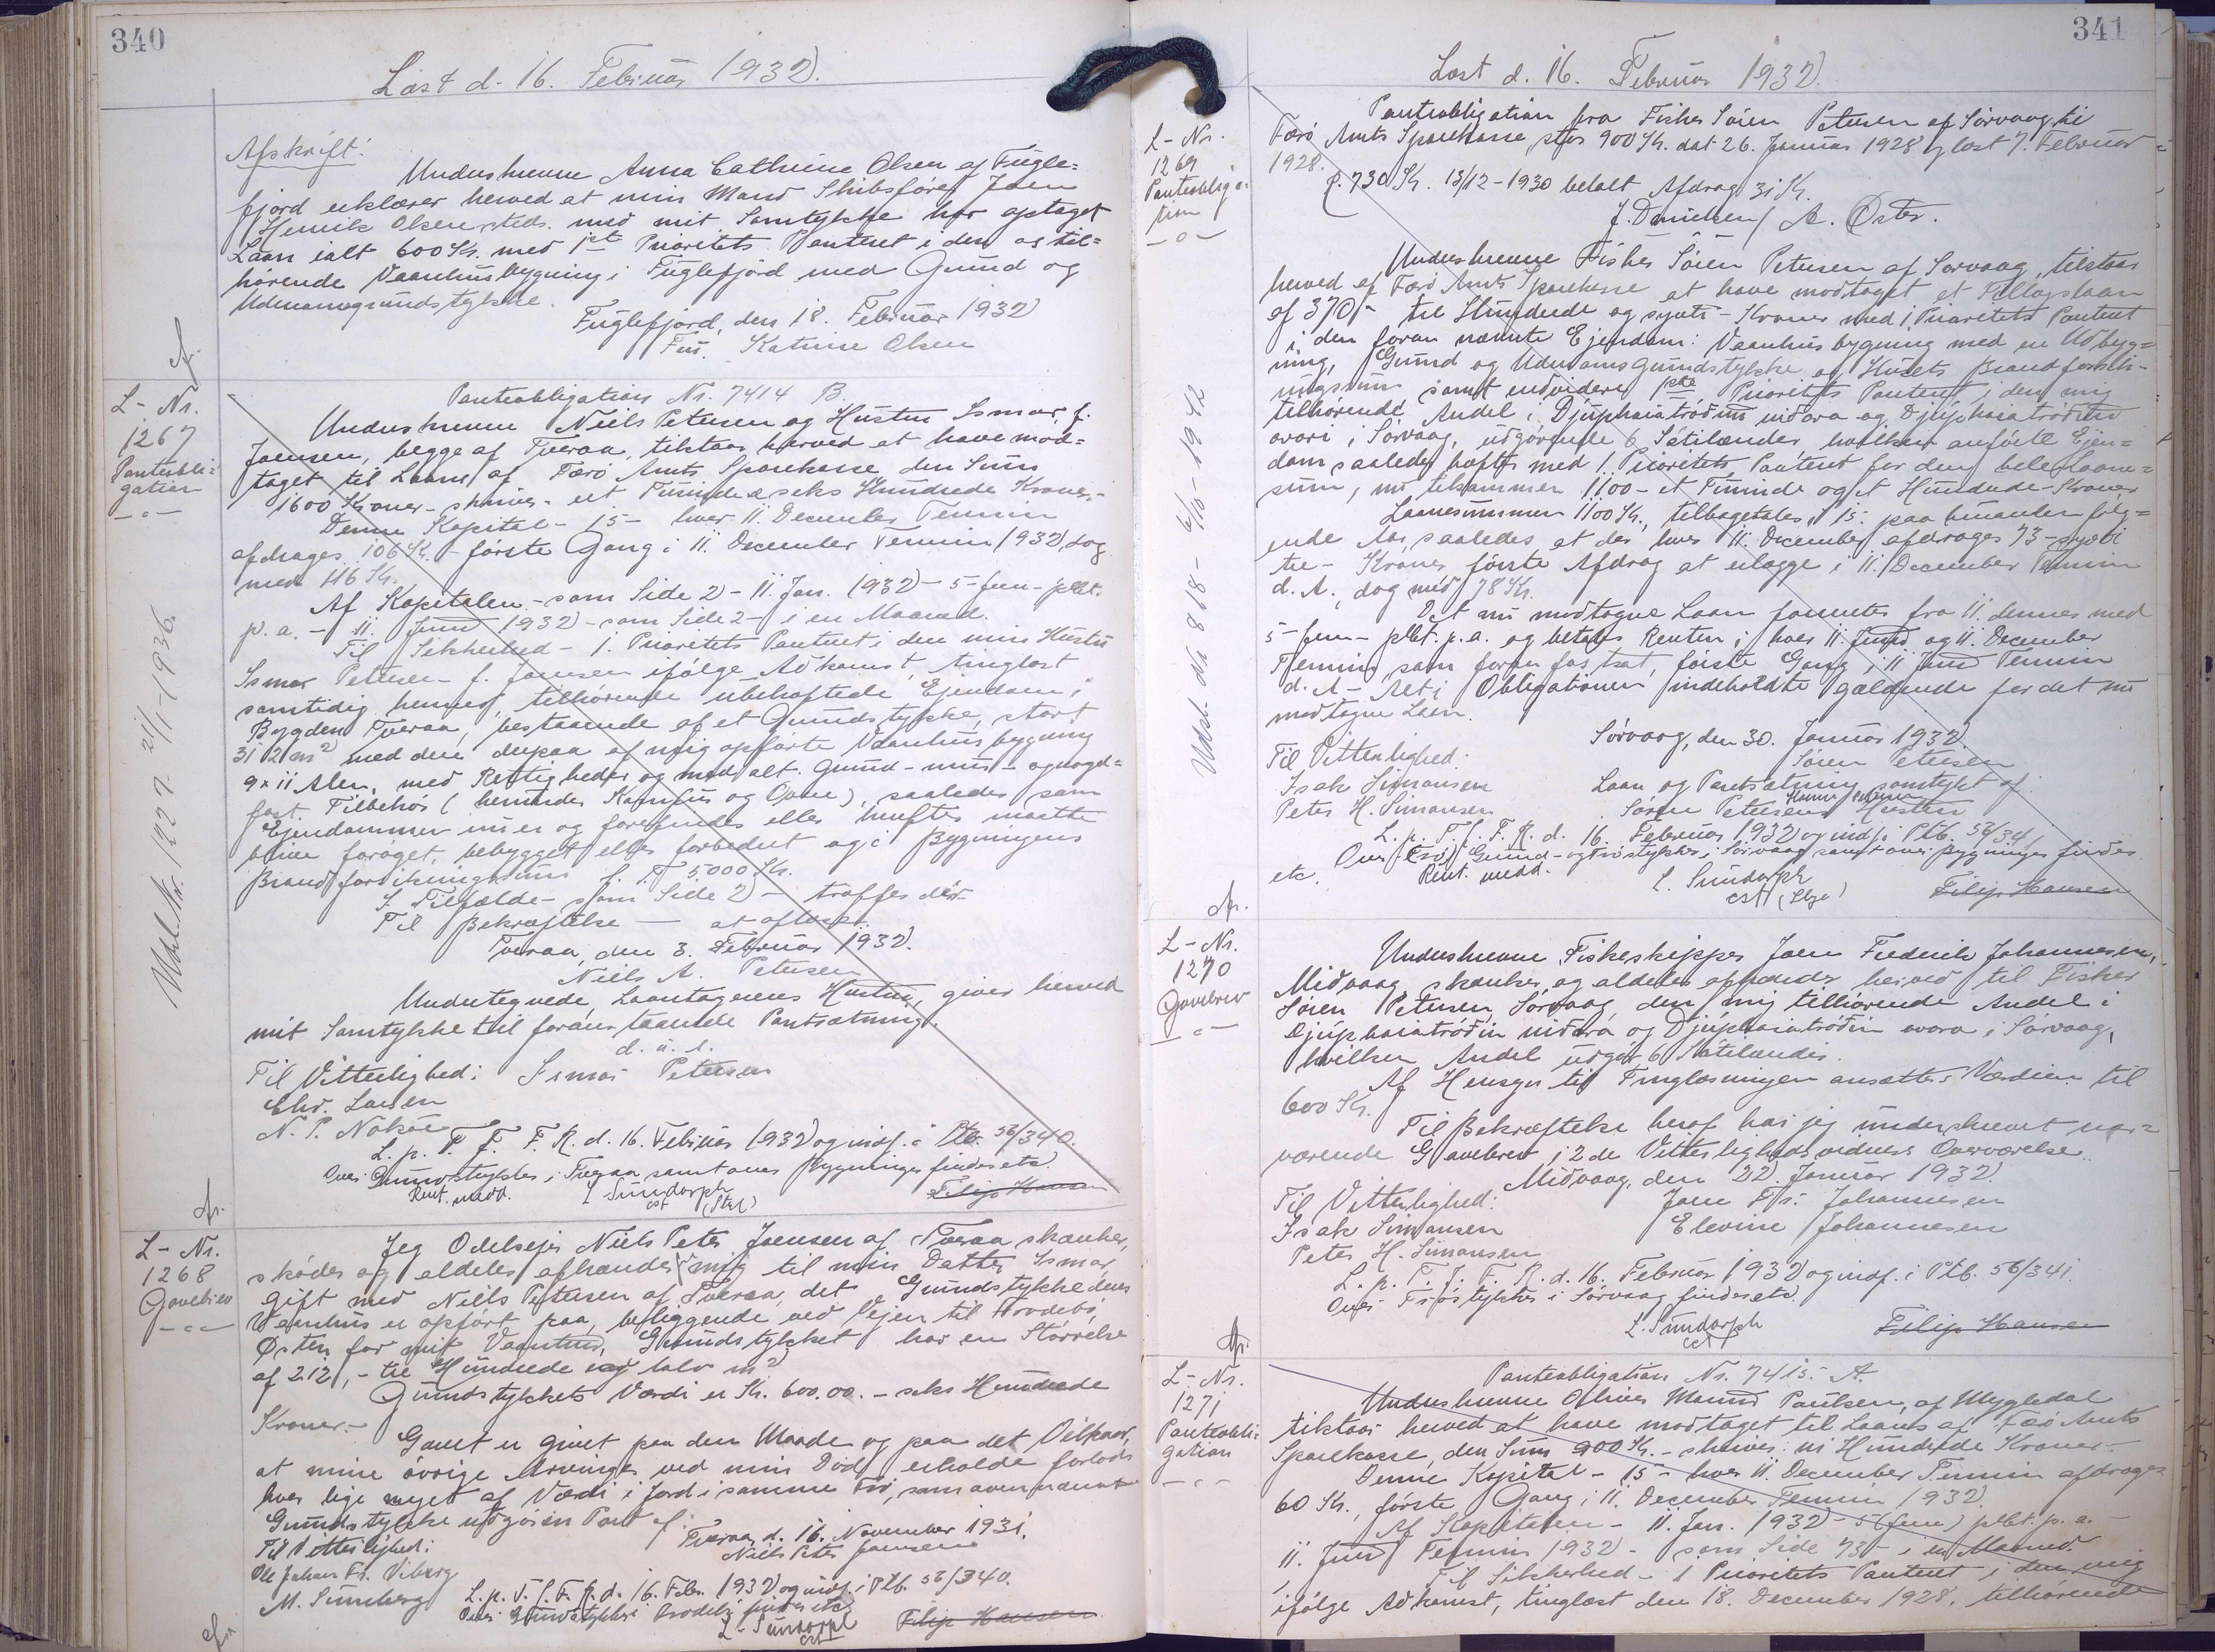 340
Læst d. 16. Februar 1932.
Afskrift:
Underskrevne Anna Cathrine Olsen af Fugle=
fjord erklærer herved at min Mand Skibsfører Joen
Henrik Olsen, steds. med mit Samtykke har optaget
Laan ialt 600 Kr. med 1ste Prioritets Panteret i den os til=
hørende Vaanhusbygning i Fuglefjord med Grund og
Udenomsgrundstykke.
Fuglefjord, den 18. Februar 1932
Katrine Olsen
L-Nr.
1267
Panteobli=
gation
Udsl. Nr. 1227 - 21/1-1936.
Panteobligation Nr. 7414 B.
Underskrevne Niels Petersen og Hustru Ismar f.
Joensen, begge af Tveraa, tilstaar herved at have mod=
taget til Laans af Færø Amts Sparekasse den Sum
1600 Kroner - skriver - eet Tusinde seks Hundrede Kroner.-
Denne Kapital - 15 - hver 11. December Termin
afdrages 106 Kr. - første Gang i 11. December Termin 1932, dog
med 116 Kr.
Af Kapitalen - som Side 2 - 11. Jan. 1932 - 5 - fem - pCt.
p. a. - 11. Juni 1932 - som Side 2 - i en Maaned.
Til Sikkerhed - 1. Prioritets Panteret i den min Hustru
Ismar Petersen f. Joensen ifølge Adkomst, tinglæst
samtidig hermed, tilhørende ubehæftede Ejendom i
Bygden Tveraa, bestaaende af et Grundstykke, stort
312 m2 med den derpaa af mig opførte Vaanhusbygning
9 x 11 Alen, med Rettigheder og med alt. Grund - mur - og nagel=
fast Tilbehør (herunder Komfur og Ovne), saaledes som
Ejendommen nu er og forefindes eller herefter maatte
blive forøget, bebygget eller forbedret og i Bygningens
Brandforsikringssum f. T. 5000 Kr.
I Tilfælde - som Side 2 - træffes dér.
Til Bekræftelse - at aflæse.
Tveraa, den 3. Februar 1932.
Niels A. Petersen
Undertegnede, Laantagerens Hustru, giver herved
mit Samtykke til foranstaaende Pantsætning.
d. u. s.
Til Vitterlighed: Ismar Petersen
Chr. Larsen
N. P. Nokøe
L. p. T. f. F. R. d. 16. Februar 1932 og indf. i Ptb. 56/340.
Over Grundstykket i Tveraa samt over Bygninger findes etc.
Rent. medd.
L. Sundorph
cst
Filip Hansen
L-Nr.
1268
Gavebrev
Jeg Odelsejer Niels Peter Joensen af Tveraa skænker,
skøder og aldeles afhænder mig til min Datter Ismar,
gift med Niels Petersen af Tveraa, det Grundstykke deres
Vaanhus er opført paa, beliggende ved Vejen til Trodebø,
Østen for mit Grundstykket har en Størrelse
af 212,- to Hundrede og tolv m2
Grundstykkets Værdi er Kr. 600.00. - seks Hundrede
Kroner.-
Gavet er givet paa den Maade og paa det Vilkaar,
at mine øvrige Arvinger ved min Død erholde forlods
hver lige meget af Værdi i Jord i samme Trø, som ovennævnte
Grundstykke udgør en Part af.
Tveraa, d. 16. November 1931.
Til Vitterlighed:
Niels Peter Joensen
Ole Johan Fr. Viberg
M. Sumberg
L. p. T. f. F. R. d. 16. Febr. 1932 og indf. i Ptb. 56/340.
Over Grundstykket i Trodebø findes etc.
L. Sundorph
cst
Filip Hansen
341
Læst d. 16. Februar 1932.
L-Nr.
1269
Panteobliga=
tion
Udsl. Nr 818 - 6/10 - 1942
Panteobligation fra Fisker Søren Petersen af Sørvaag til
Færø Amts Sparekasse, stor 900 Kr. dat 26. Januar 1928 læst 7. Februar
1928.
R. 730 Kr. 13/12-1930 betalt Afdrag 31 Kr.
J. Danielsen/ A. Øster.
Underskrevne Fisker Søren Petersen af Sørvaag, tilstaar
herved af Færø Amts Sparekasse at have modtaget et Tillægslaan
af 370,- tre Hundrede og syvti - Kroner med 1. Prioritets Panteret
i den foran nævnte Ejendom: Vaanhusbygning med en Udbyg=
ning, Grund og Udenomsgrundstykke og Husets Brandforsik-
ringssum samt endvidere 1ste Prioritets Panteret i den mig
tilhørende Andel i Djúphaiatrøðini niðara og Djúphaiatrøðini
ovari i Sørvaag, udgørende 6 Sátilendir, hvilken anførte Ejen=
dom saaledes hæfter med 1. Prioritets Panteret for den hele Laane=
sum, nu tilsammen 1100 - et Tusinde og et Hundrede - Kroner
Laanesummen 1100 Kr., tilbagetales i 15 paa hinanden følg=
ende Aar, saaledes at der hver 11. December afdrages 73 - syvti
tre - Kroner første Afdrag at erlægge i 11. December Termin
d. A., dog med 78 Kr.
Det nu modtagne Laan forrentes fra 11. dennes med
5 - fem - pCt. p. a. og betales Renten i hver 11. Juni og 11. December
Termin, som foran fastsat, første Gang i 11 Juni Termin
d. A - Alt i Obligationen indeholdte gældende for det nu
modtagne Laan.
Sørvaag, den 30. Januar 1932.
Til Vitterlighed:
Søren Petersen
Isak Simonsen
Laan og Pantsætning samtykt af:
Peter H. Simonsen
Søren Petersens Hustru
L. p. T. f. F. R. d. 16. Februar 1932 og indf. i Ptb. 56/341
Over Grund - og Trøstykker i Sørvaag samt over Bygninger findes
etc.
Rent. medd.
L. Sundorph
cst
Filip Hansen
L-Nr.
1270
Gavebrev
Underskrevne Fiskeskipper Joen Frederik Johannesen,
Midvaag, skænker og aldeles afhænder herved til Fisker
Søren Petersen, Sørvaag, den mig tilhørende Andel i
Djúphaiatrøðin niðara og Djúphaiatrøðin ovara i Sørvaag,
hvilken Andel udgør 6 Sátilendir.
Af Hensyn til Tinglæsningen ansættes Værdien til
600 Kr.
Til Bekræftelse heraf har jeg underskrevet nær=
værende Gavebrev i 2 de Vitterlighedsvidners Overværelse.
Midvaag, den 22. Januar 1932.
Til Vitterlighed:
Joen Fr. Johannesen
Isak Simonsen
Elevine Johannesen
Peter H. Simonsen
L. p. T. f. F. R. d. 16. Februar 1932 og indf. i Ptb. 56/341.
Over Trøstykker i Sørvaag findes etc.
L. Sundorph
cst
Filip Hansen
L-Nr.
1271
Panteobli=
gation
Panteobligation Nr. 7415 A.
Underskrevne Oliver Maurid Poulsen, af Mygledal
tilstaar herved at have modtaget til Laans af Færø Amts
Sparekasse, den Sum 900 Kr. - skriver: ni Hundrede Kroner.
Denne Kapital - 15 - hver 11. December Termin afdrages
60 Kr., første Gang i 11. December Termin 1932.
Af Kapitalen - 11. Jan. 1932 - 5 (fem) pCt. p. a. -
11. Juni Termin 1932 - som Side 73 - i en Maaned.
Til Sikkerhed - 1 Prioritets Panteret i den mig
ifølge Adkomst, tinglæst den 18. December 1928, tilhørende